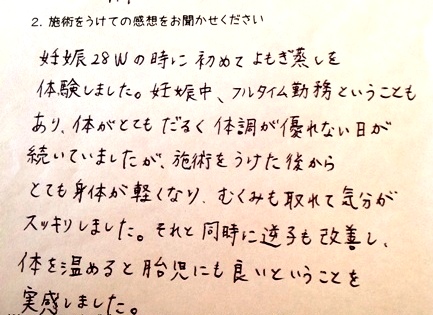 2. 施術をうけての感想をお聞かせください
妊娠28Wの時に初めてよもぎ蒸しを
体験しました。妊娠中、フルタイム勤務ということも
あり、体がとてもだるく体調が優れない日が
続いていましたが、施術をうけた後から
とても身体が軽くなり、むくみも取れて気分が
スッキリしました。それと同時に逆子も改善し、
体を温めると胎児にも良いということを
実感しました。